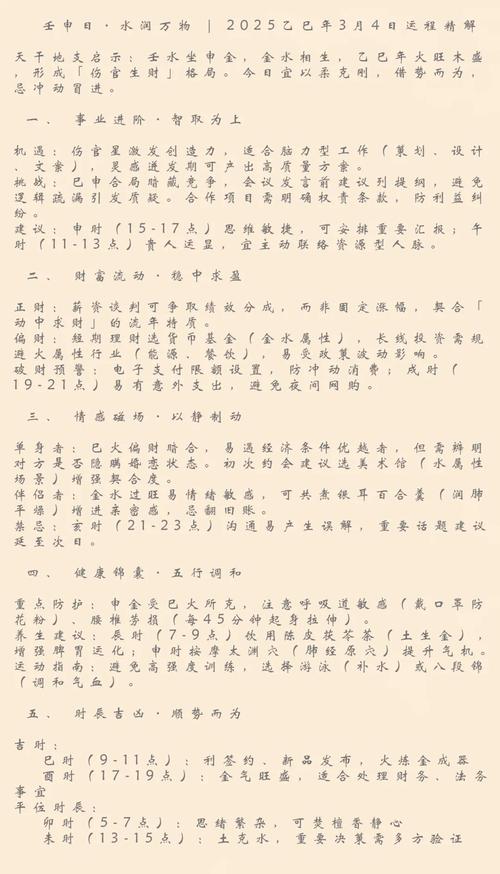 壬申日·水润万物 | 2025乙巳年3月4日运程精解
天干地支启示：壬水坐申金，金水相生，乙巳年火旺木盛
，形成「伤官生财」格局。今日宜以柔克刚，借势而为，
忌冲动冒进。
一、 事业进阶·智取为上
机遇：伤官星激发创造力，适合脑力型工作（策划、设计
、文案），灵感迸发期可产出高质量方案。
挑战：巳申合局暗藏竞争，会议发言前建议列提纲，避免
逻辑疏漏引发质疑。合作项目需明确权责条款，防利益纠
纷。
建议：申时（15-17点）思维敏捷，可安排重要汇报；午
时（11-13点）贵人运显，宜主动联络资源型人脉。
二、 财富流动·稳中求盈
正财：薪资谈判可争取绩效分成，而非固定涨幅，契合「
动中求财」的流年特质。
偏财：短期理财选货币基金（金水属性），长线投资需规
避火属性行业（能源、餐饮），易受政策波动影响。
破财预警：电子支付限额设置，防冲动消费；戌时（
19-21点）易有意外支出，避免夜间网购。
三、 情感磁场·以静制动
单身者：巳火偏财暗合，易遇经济条件优越者，但需辨明
对方是否隐瞒婚恋状态。初次约会建议选美术馆（水属性
场景）增强契合度。
伴侣者：金水过旺易情绪敏感，可共煮银耳百合羹（润肺
平燥）增进亲密感，忌翻旧账。
禁忌：亥时（21-23点）沟通易产生误解，重要话题建议
延至次日。
四、 健康锦囊·五行调和
重点防护：申金受巳火所克，注意呼吸道敏感（戴口罩防
花粉）、腰椎劳损（每45分钟起身拉伸）。
养生建议：辰时（7-9点）饮用陈皮茯苓茶（土生金），
增强脾胃运化；申时按摩太渊穴（肺经原穴）提升气机。
运动指南：避免高强度训练，选择游泳（补水）或八段锦
（调和气血）。
五、 时辰吉凶·顺势而为
吉时：
巳时（9-11点）：利签约、新品发布，火炼金成器
酉时（17-19点）：金气旺盛，适合处理财务、法务
事宜
平位时辰：
卯时（5-7点）：思绪繁杂，可焚檀香静心
未时（13-15点）：土克水，重要决策需多方验证